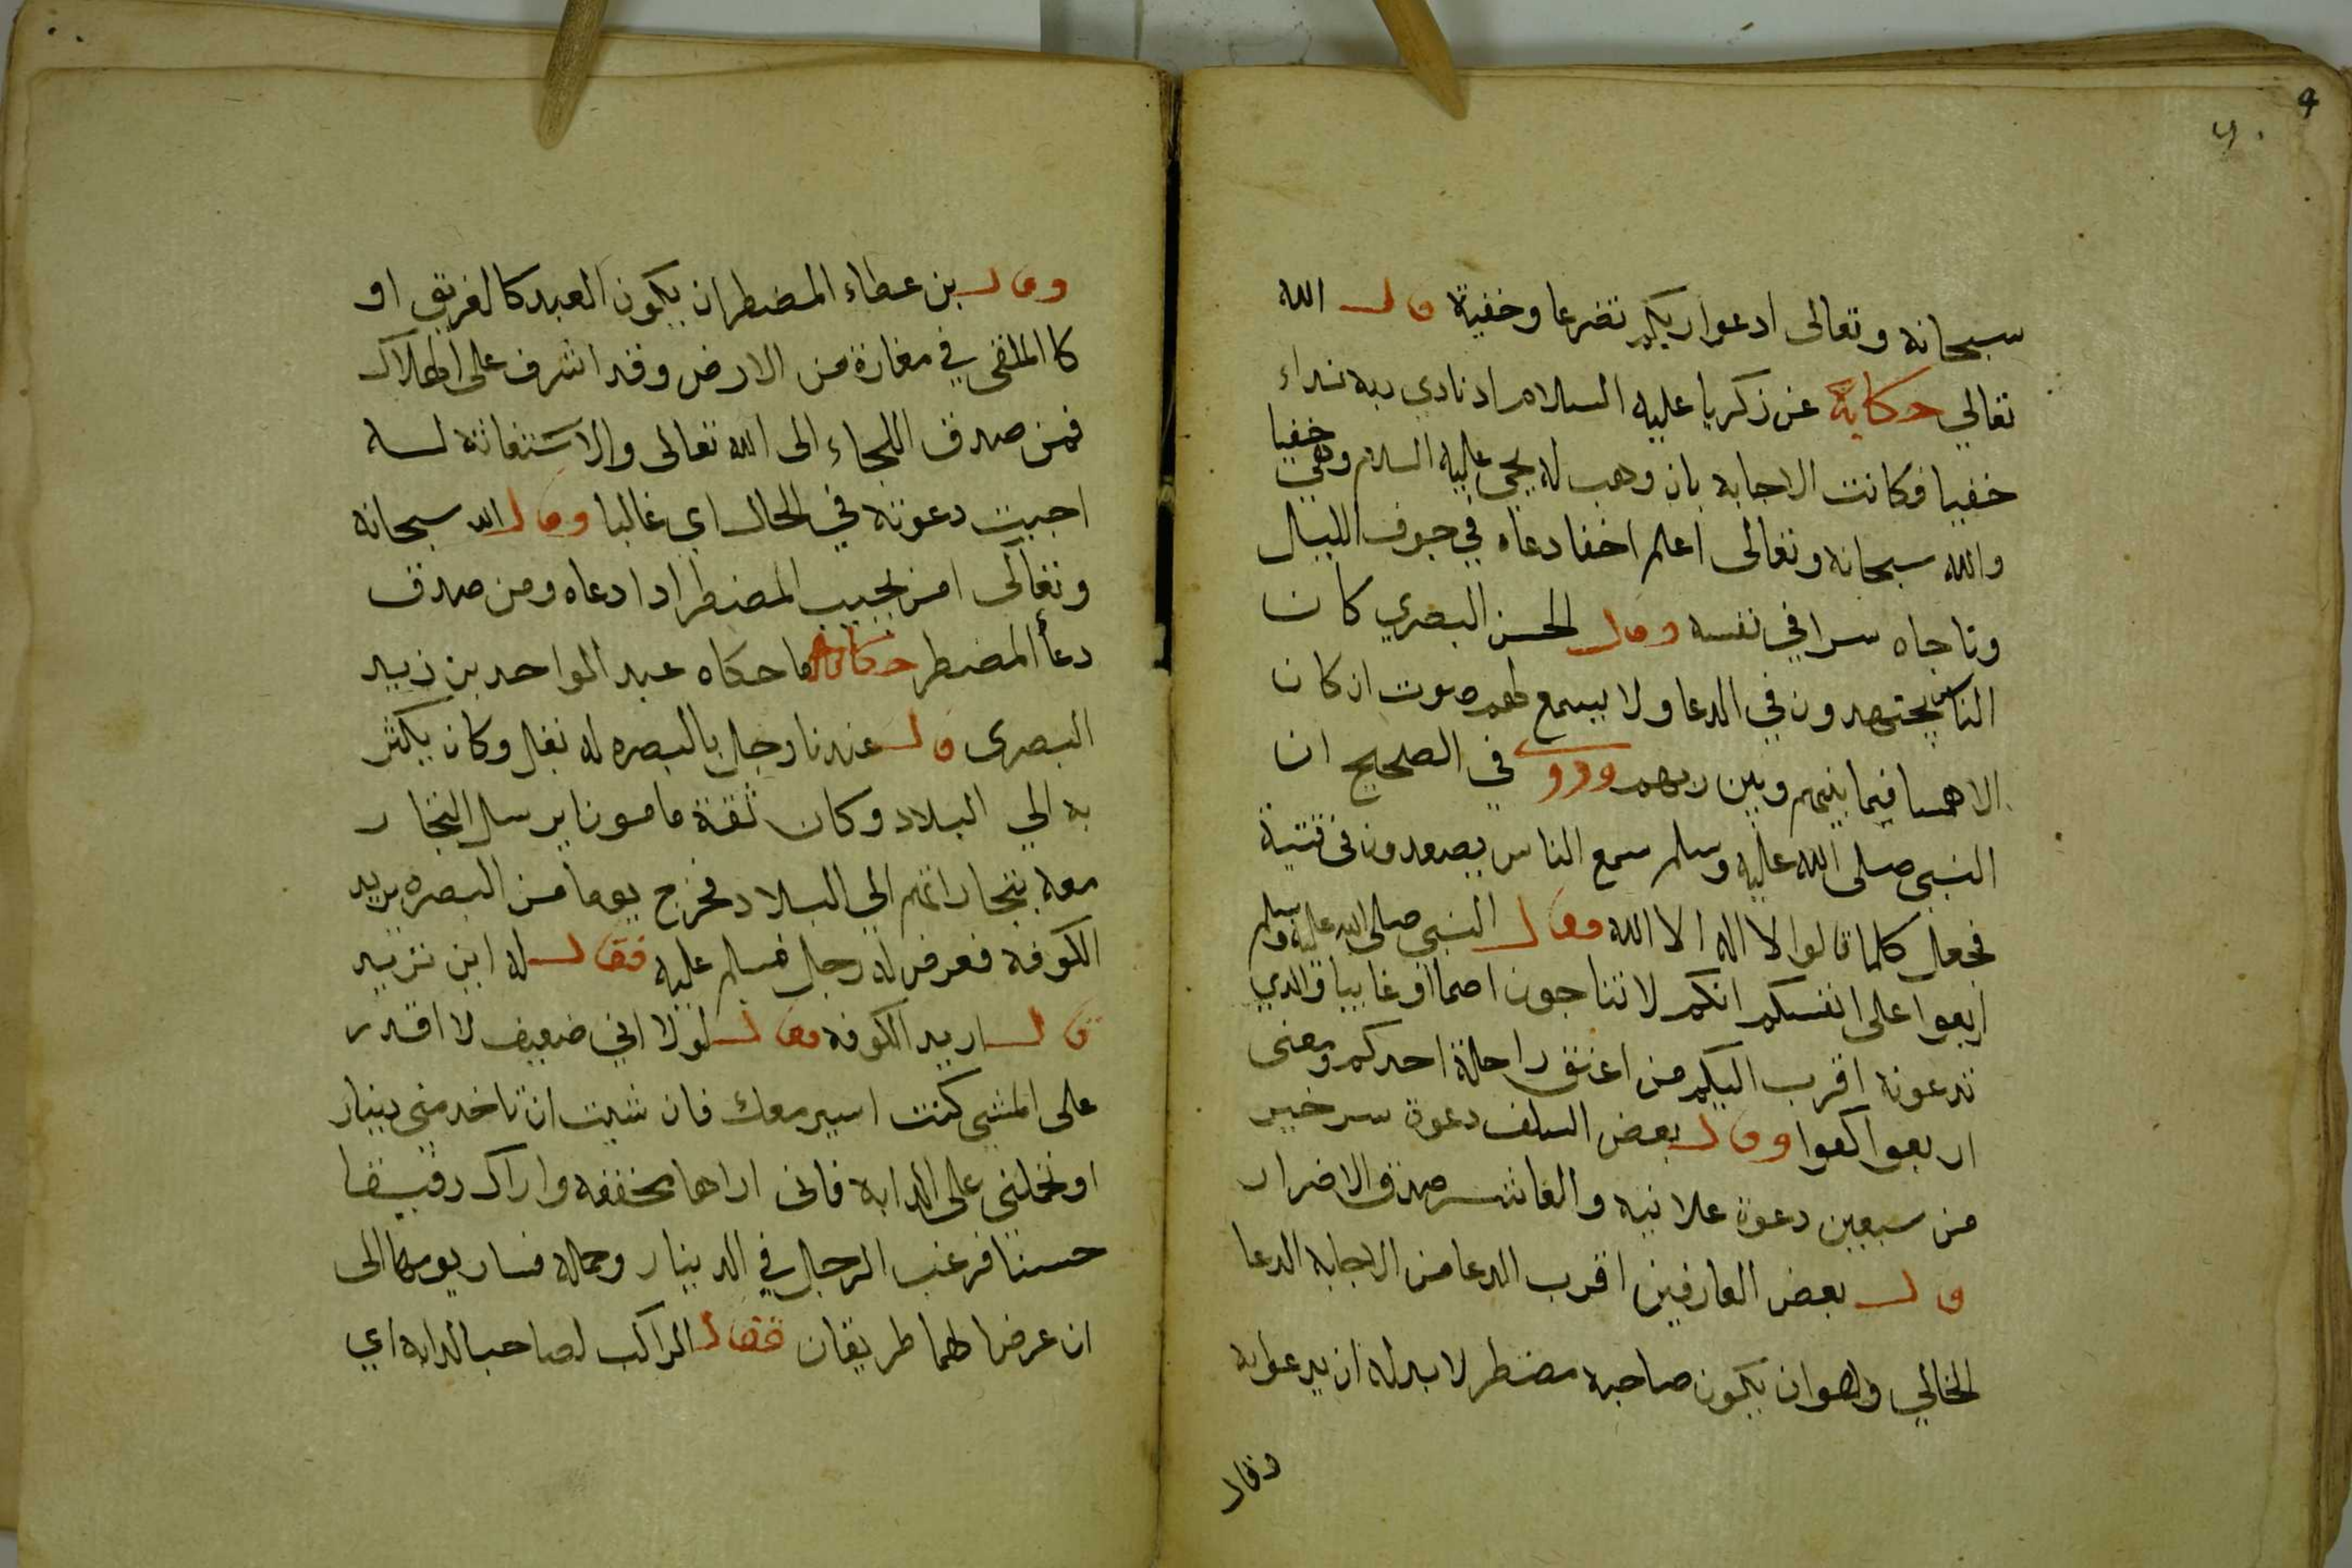 سبحانه وتعالى ادعوا ربكم تضرعا وخفية قال الله
تعالي حكاية عن زكريا عليه السلام اد نادي ربه نداء
خفيا فكانت الاجابه بان وهب له يحيى عليه السلام وهي خفيا
والله سبحانه وتعالى اعلم اخفا دعاه في جوف الليل
وناجاه سرا في نفسه وقال الحسن البصري كان
الناس يجتهدون في الدعا ولا يسمع لهم صوت ان كان
الا همسا فيما بينهم وبين ربهم وروى في الصحيح ان
النبي صلى الله عليه وسلم سمع الناس يصعدون في ثنية
فجعل كلما قالوا لا اله الا الله وقال النبي صلى الله عليه وسلم
اربعوا على انفسكم انكم لا تناجون اصما او غايبا والدي
تدعونه اقرب اليكم من اعنق راحلة احدكم ومعنى
اربعوا اكفوا وقال بعض السلف دعوة سر خير
من سبعين دعوة علانيه والعاشر صدق الاضرار
قال بعض العارفين اقرب الدعا من الاجابه الدعا
الخالي وهو ان يكون صاحبه مضطر لا بد له ان يدعوا به
وقال
وقال بن عطاء المضطر ان يكون العبد كالغريق او
كا الملقى في مفازة من الارض وقد اشرف على الهلاك
فمن صدق اللجاء الى الله تعالى والاستغاثة له
اجيبت دعوته في الحال اي غالبا وقال الله سبحانه
وتعالى امن يجيب المضطر ادا دعاه ومن صدق
دعأ المضطر حكاية ما حكاه عبد الواحد بن زييد
البصرى قال عندنا رجل بالبصره له بغل وكان يكثر
به الي البلاد وكان ثقة مامونا يرسل التجار
معه بتجاراتهم الي البلاد فخرج يوما من البصره يريد
الكوفه فعرض له رجل فسلم عليه فقال له اين تريد
قال اريد الكوفه فقال لولا اني ضعيف لا اقدر
على المشي كنت اسير معك فان شيت ان تاخد مني دينار
او تحملني على الدابه فانى اراها مخففه واراك رفيقا
حسنا فرغب الرجل في الدينار وحمله فسار يومهما الى
ان عرضا لهما طريقان فقال الراكب لصاحب الدابه اي